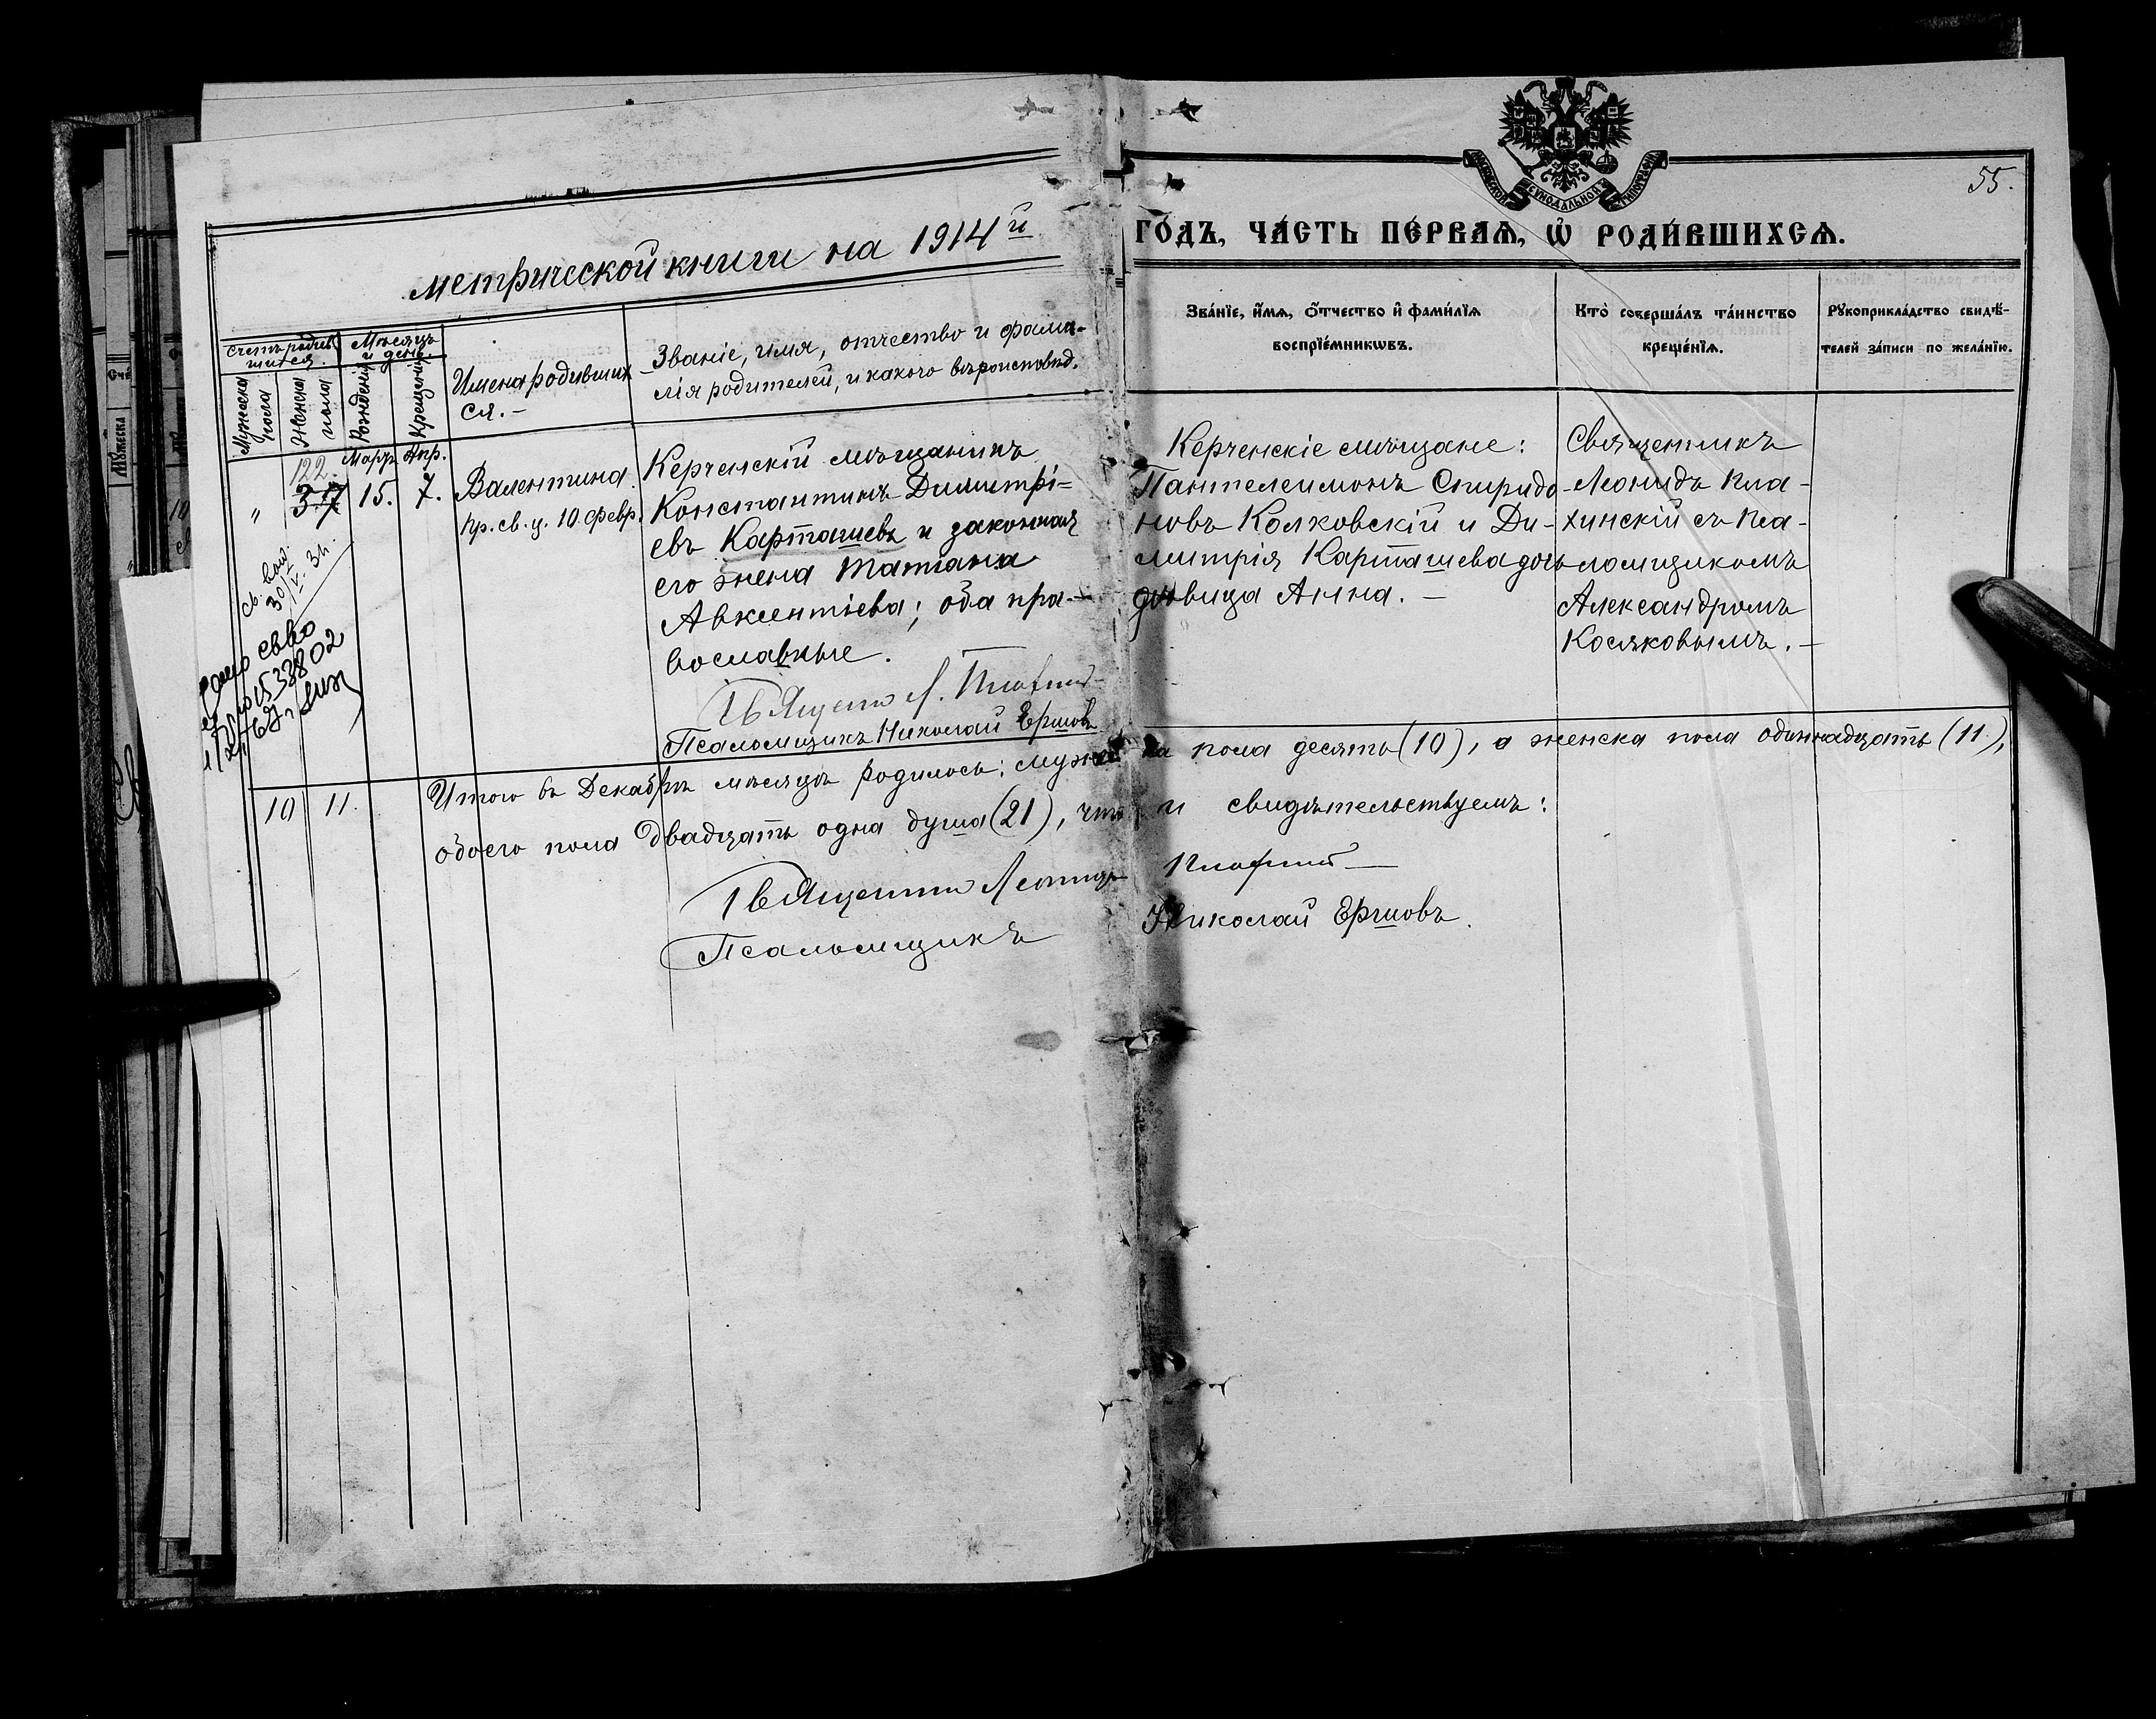 55.
СѴНОДАЛЬНОЙ
Метрической книги на 1914й
ГОДЪ, ЧАСТЬ ПЕРВАЯ, Ѡ РОДИВШИХСЯ.
Счетъ родив
шихся.
Мѣсяцъ
и день.
Мужеска
пола
Женска
пола
Рожденія
Крещенія
Имена родивших
ся. –
Званіе, имя, отчество и фами-
лія родителей, и какого вѣроисповѣд.
Званіе, имя, отчество и фамилія
воспріемниковъ.
Кто совершалъ таинство
крещенія.
Рукоприкладство свидѣ-
телей записи по желанію.
122
"
37
Мартъ
15.
Апр.
7.
Валентина.
пр. св. ц. 10. февр.
Керченскій мѣщанинъ
Константинъ Димитрі=
евъ Карташевъ и законная
его жена Татіана
Авксентіева; оба пра-
вославные.
Псаломщикъ Николай Ершовъ
Керченскіе мѣщане:
Пантелеимонъ Спиридо-
новъ Колковскій и Ди-
митрія Карташева дочь
дѣвица Анна. –
Священникъ
Леонидъ
хинскій съ Пса-
ломщикомъ
Александромъ
Косяковымъ. –
30/IV. 34.
10 11.
Итого въ Декабрѣ мѣсяцѣ родилось: мужеска пола десять (10), а женска пола одиннадцать (11),
обоего пола Двадцать одна душа (21), что и свидѣтельствуемъ:
Священникъ Леонидъ
Псаломщикъ Николай Ершовъ.